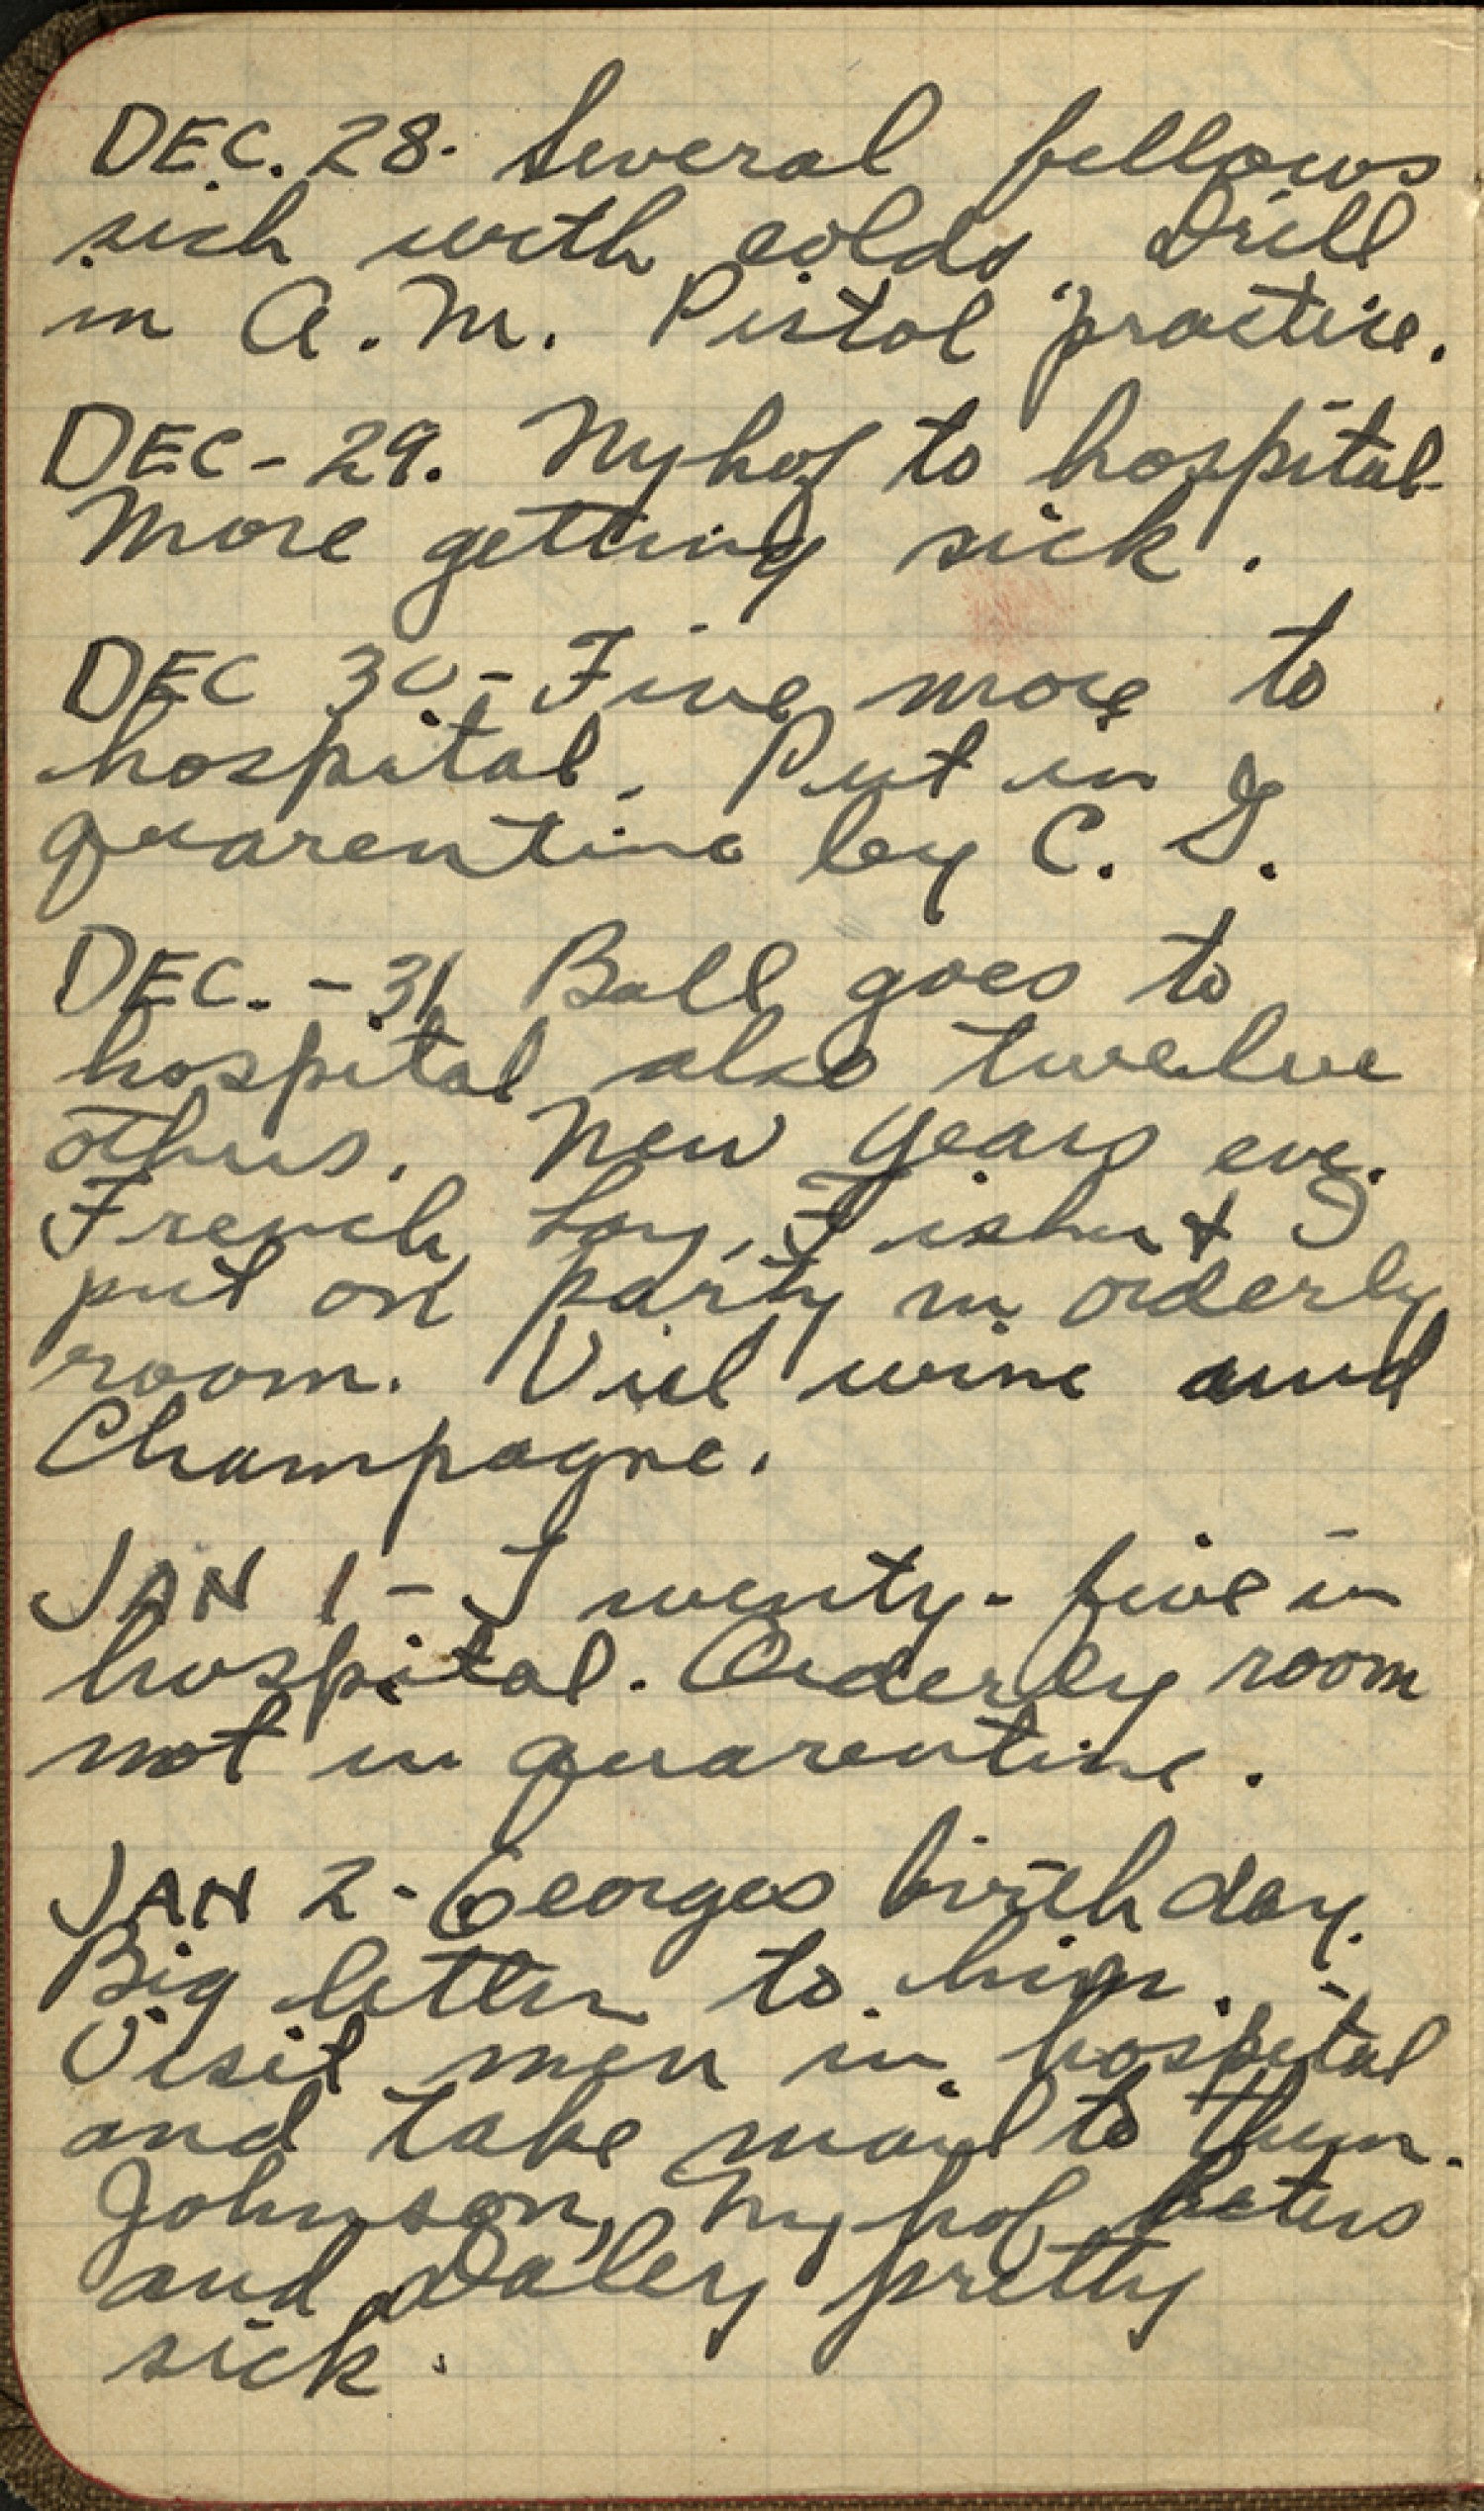 DEC. 28. Several fellows
sick with colds. Drill
in A.M. Pistol practice.
DEC - 29. Nyhof to hospital.
More getting sick.
DEC 30 - Five more to
hospital. Put in
quarentine by C. G.
DEC. - 31 Ball goes to
hospital also twelve
others. New Years eve.
French, Loy, Fisher & I
put on party in orderly
room. Viel wine and
Champagne.
JAN 1 - Twenty-five in
hospital. Orderly room
not in quarentine.
JAN 2 - Georges birthday.
Big letter to him.
Visit men in hospital
and take mail to them.
Johnson, Nyhof, Peters
and Daley pretty
sick.